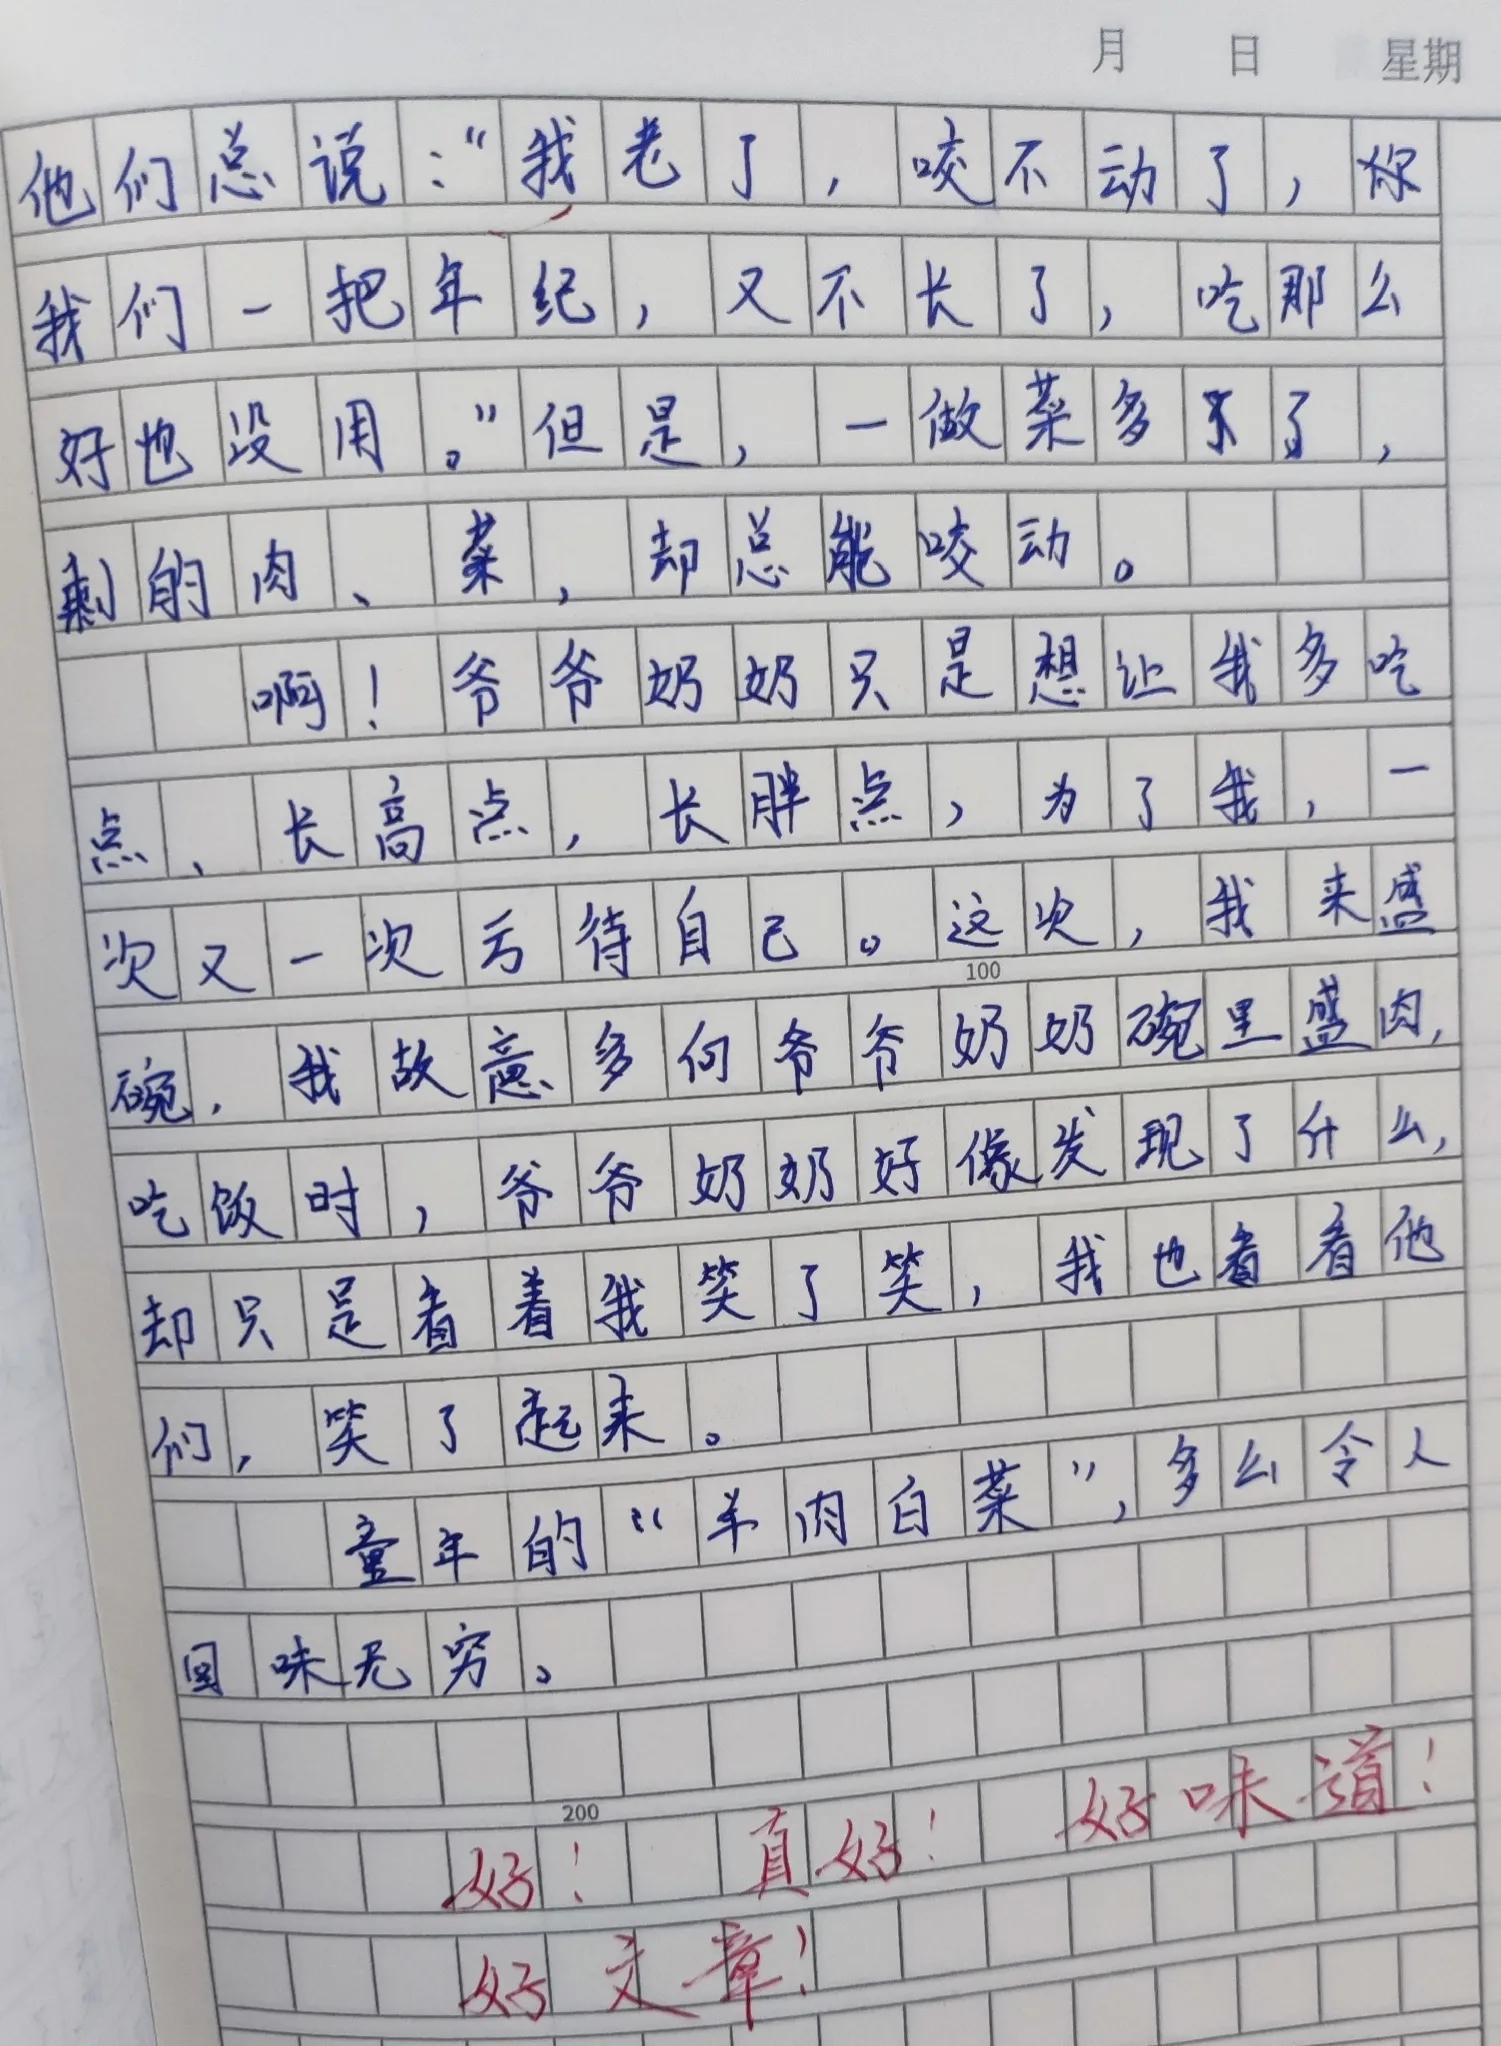 月 日 星期
他们总说：“我老了，咬不动了，你
我们一把年纪，又不长了，吃那么
好也没用。”但是，一做菜多了了，
剩的肉、菜，却总能咬动。
啊！爷爷奶奶只是想让我多吃
点、长高点，长胖点，为了我，一
次又一次亏待自己。这次，我来盛
100
碗，我故意多向爷爷奶奶碗里盛肉，
吃饭时，爷爷奶奶好像发现了什么，
却只是看着我笑了笑，我也看看他
们，笑了起来。
童年的“羊肉白菜”，多么令人
回味无穷。
200
好！真好！好味道！
好文章！